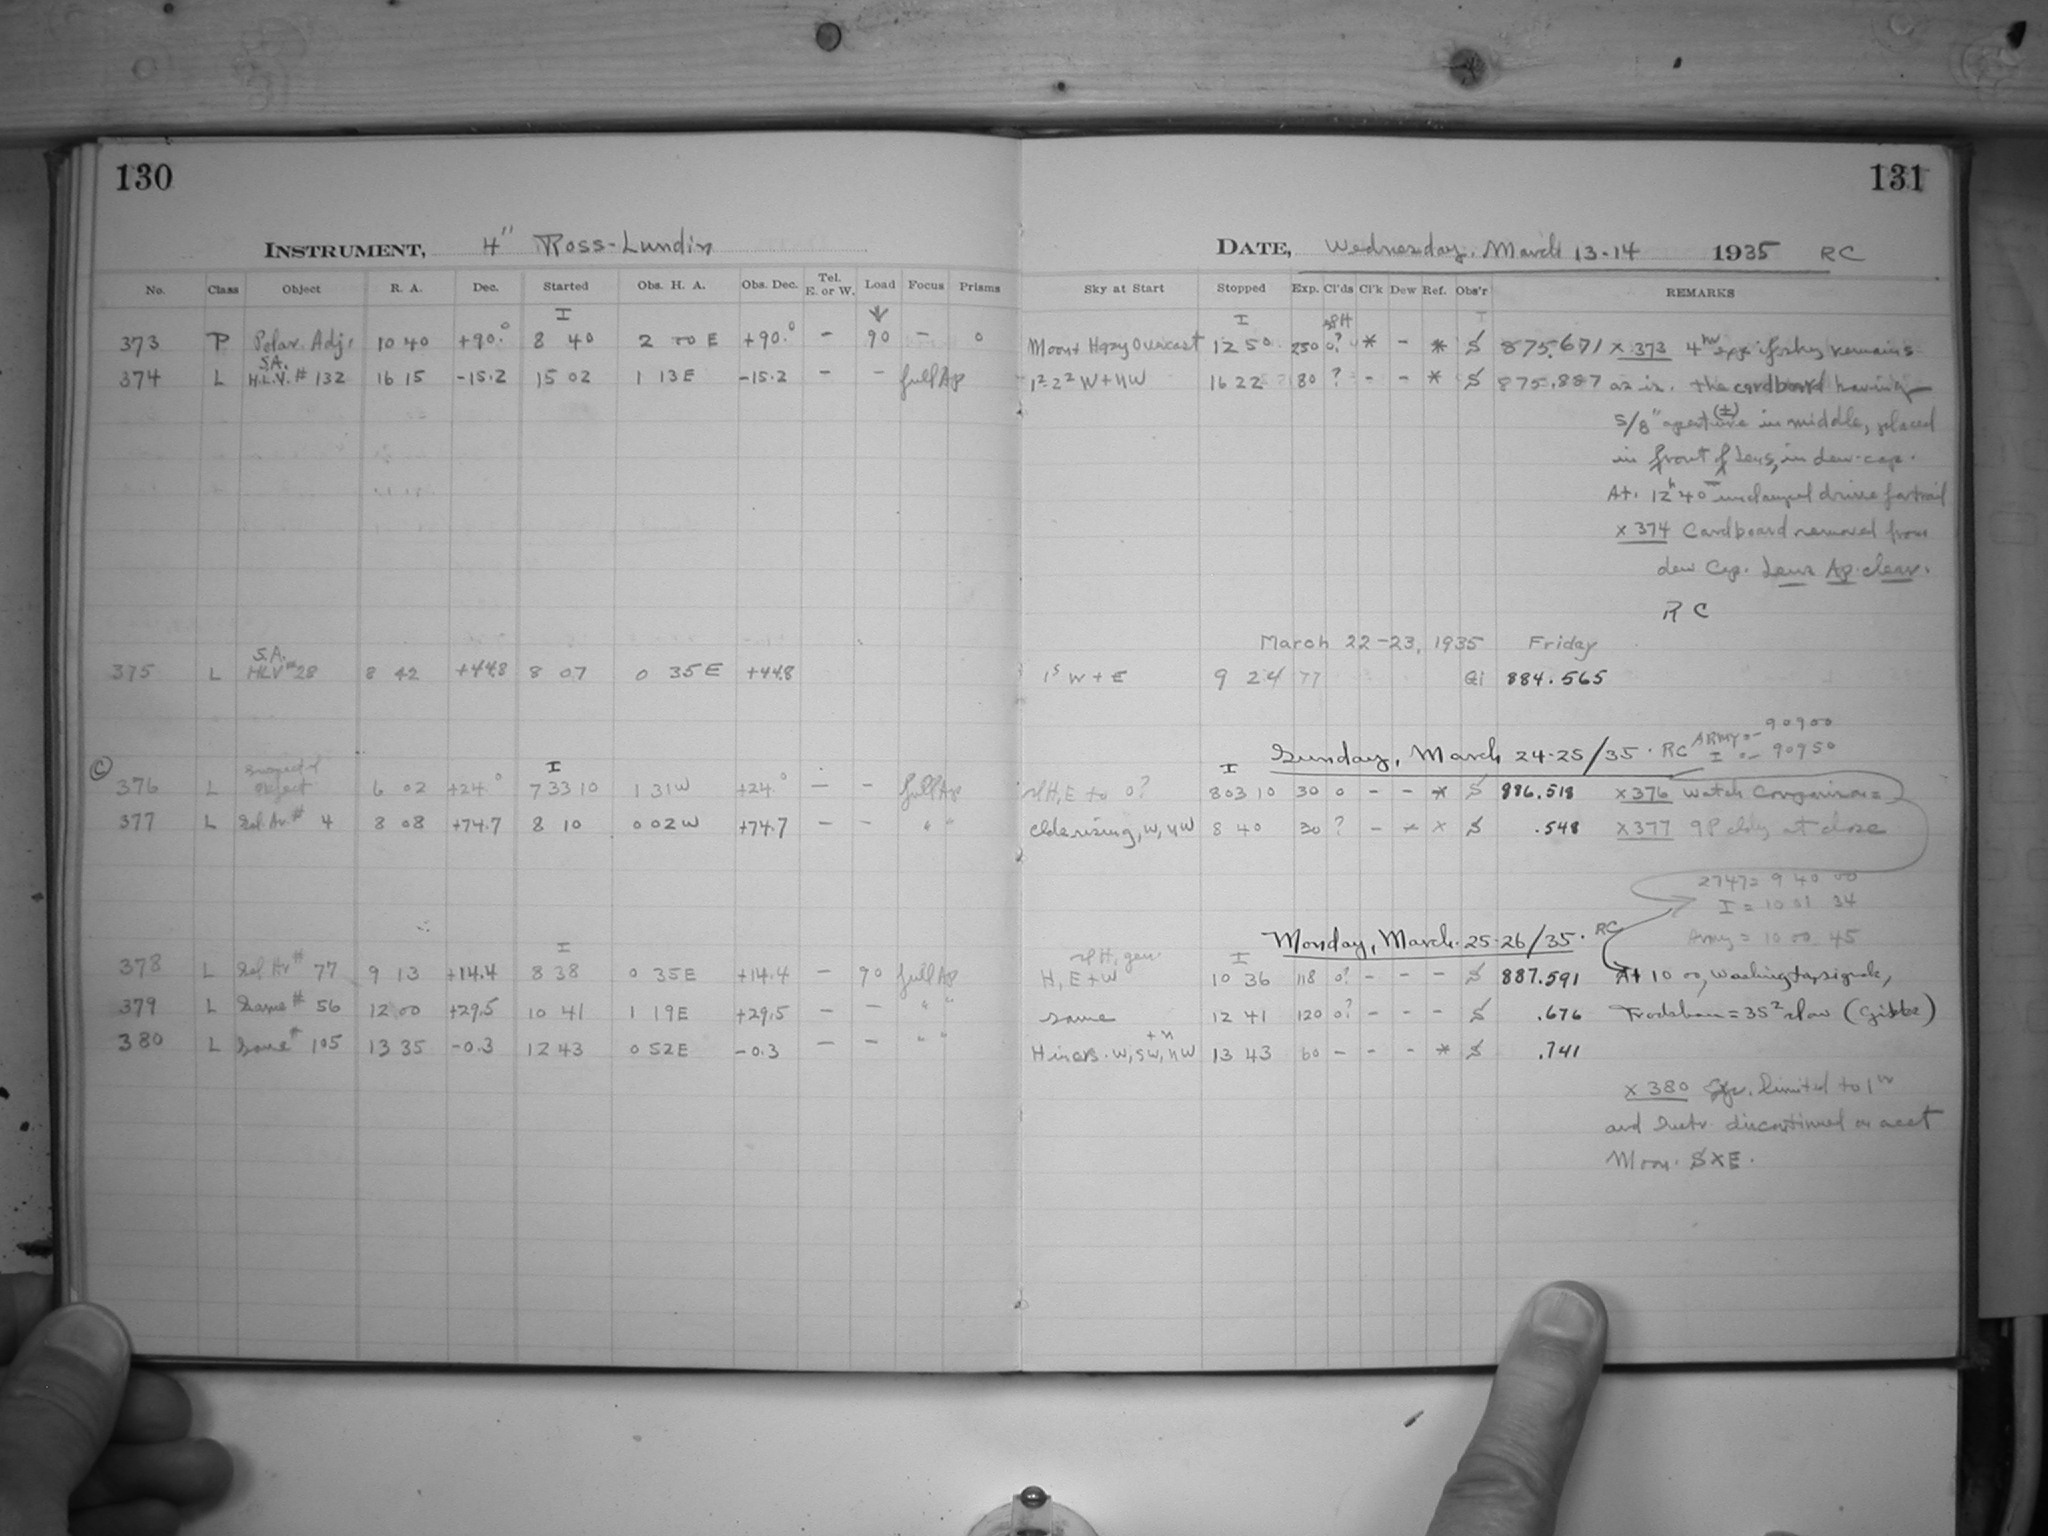 130
131
INSTRUMENT, 4" Ross-Lundin
DATE, Wednesday, March 13-14 1935 RC
No. Class Object R. A. Dec. Started Obs. H. A. Obs. Dec. Tel. E. or W. Load Focus Prisms Sky at Start Stopped Exp. Cl'ds Cl'k Dew Ref. Obs'r REMARKS
I I
373 P Polar. Adj. 10 40 +90.° 8 40 2 00 E +90.° - 90 - 0 Moon + Hazy Overcast 12 50 250 0? * - * S 875.671 x 373 4hr if sky remains
S.A.
374 L H.L.V. # 132 16 15 -15.2 15 02 1 13 E -15.2 - - full Ap 1²-2² W + NW 16 22 80 ? - - * S 875.887 as is. the cardboard having
5/8" (±) aperture in middle, placed
in front of Lens, in dew-cap.
At 12h 40m drive for trail
x 374 Cardboard removed from
dew Cap. Lens Ap. clear.
RC
March 22-23, 1935 Friday
S.A.
375 L HLV 28 8 42 +44.8 8 07 0 35 E +44.8 1⁵ W + E 9 24 77 884.565
ARMY 90900
Sunday, March 24-25/35. RC I 90950
I I
suspected
376 L object 6 02 +24.° 7 33 10 1 31 W +24.° - - full Ap H, E to 0? 8 03 10 30 0 - - * S 886.518 x 376 Watch Comparison =
377 L Sel. Ar. # 4 8 08 +74.7 8 10 0 02 W +74.7 - - " " clds rising, W, NW 8 40 30 ? - * x S .548 x 377 cldy at close
2747 = 9 40 00
I = 10 01 34
Monday, March 25-26/35. RC Army = 10 00 45
I I
378 L Sel Ar # 77 9 13 +14.4 8 38 0 35 E +14.4 - 90 full Ap H, E + W 10 36 118 0? - - - S 887.591 At 10 00, Washington signals,
379 L Same # 56 12 00 +29.5 10 41 1 19 E +29.5 - - " " same 12 41 120 0? - - - S .676 Frodsham = 35² slow (Gibbs)
+ N
380 L Same # 105 13 35 -0.3 12 43 0 52 E -0.3 - - " " W, SW, NW 13 43 60 - - - * S .741
x 380 limited to 1hr
and Instr. discontinued on acct
Moon. SXE.